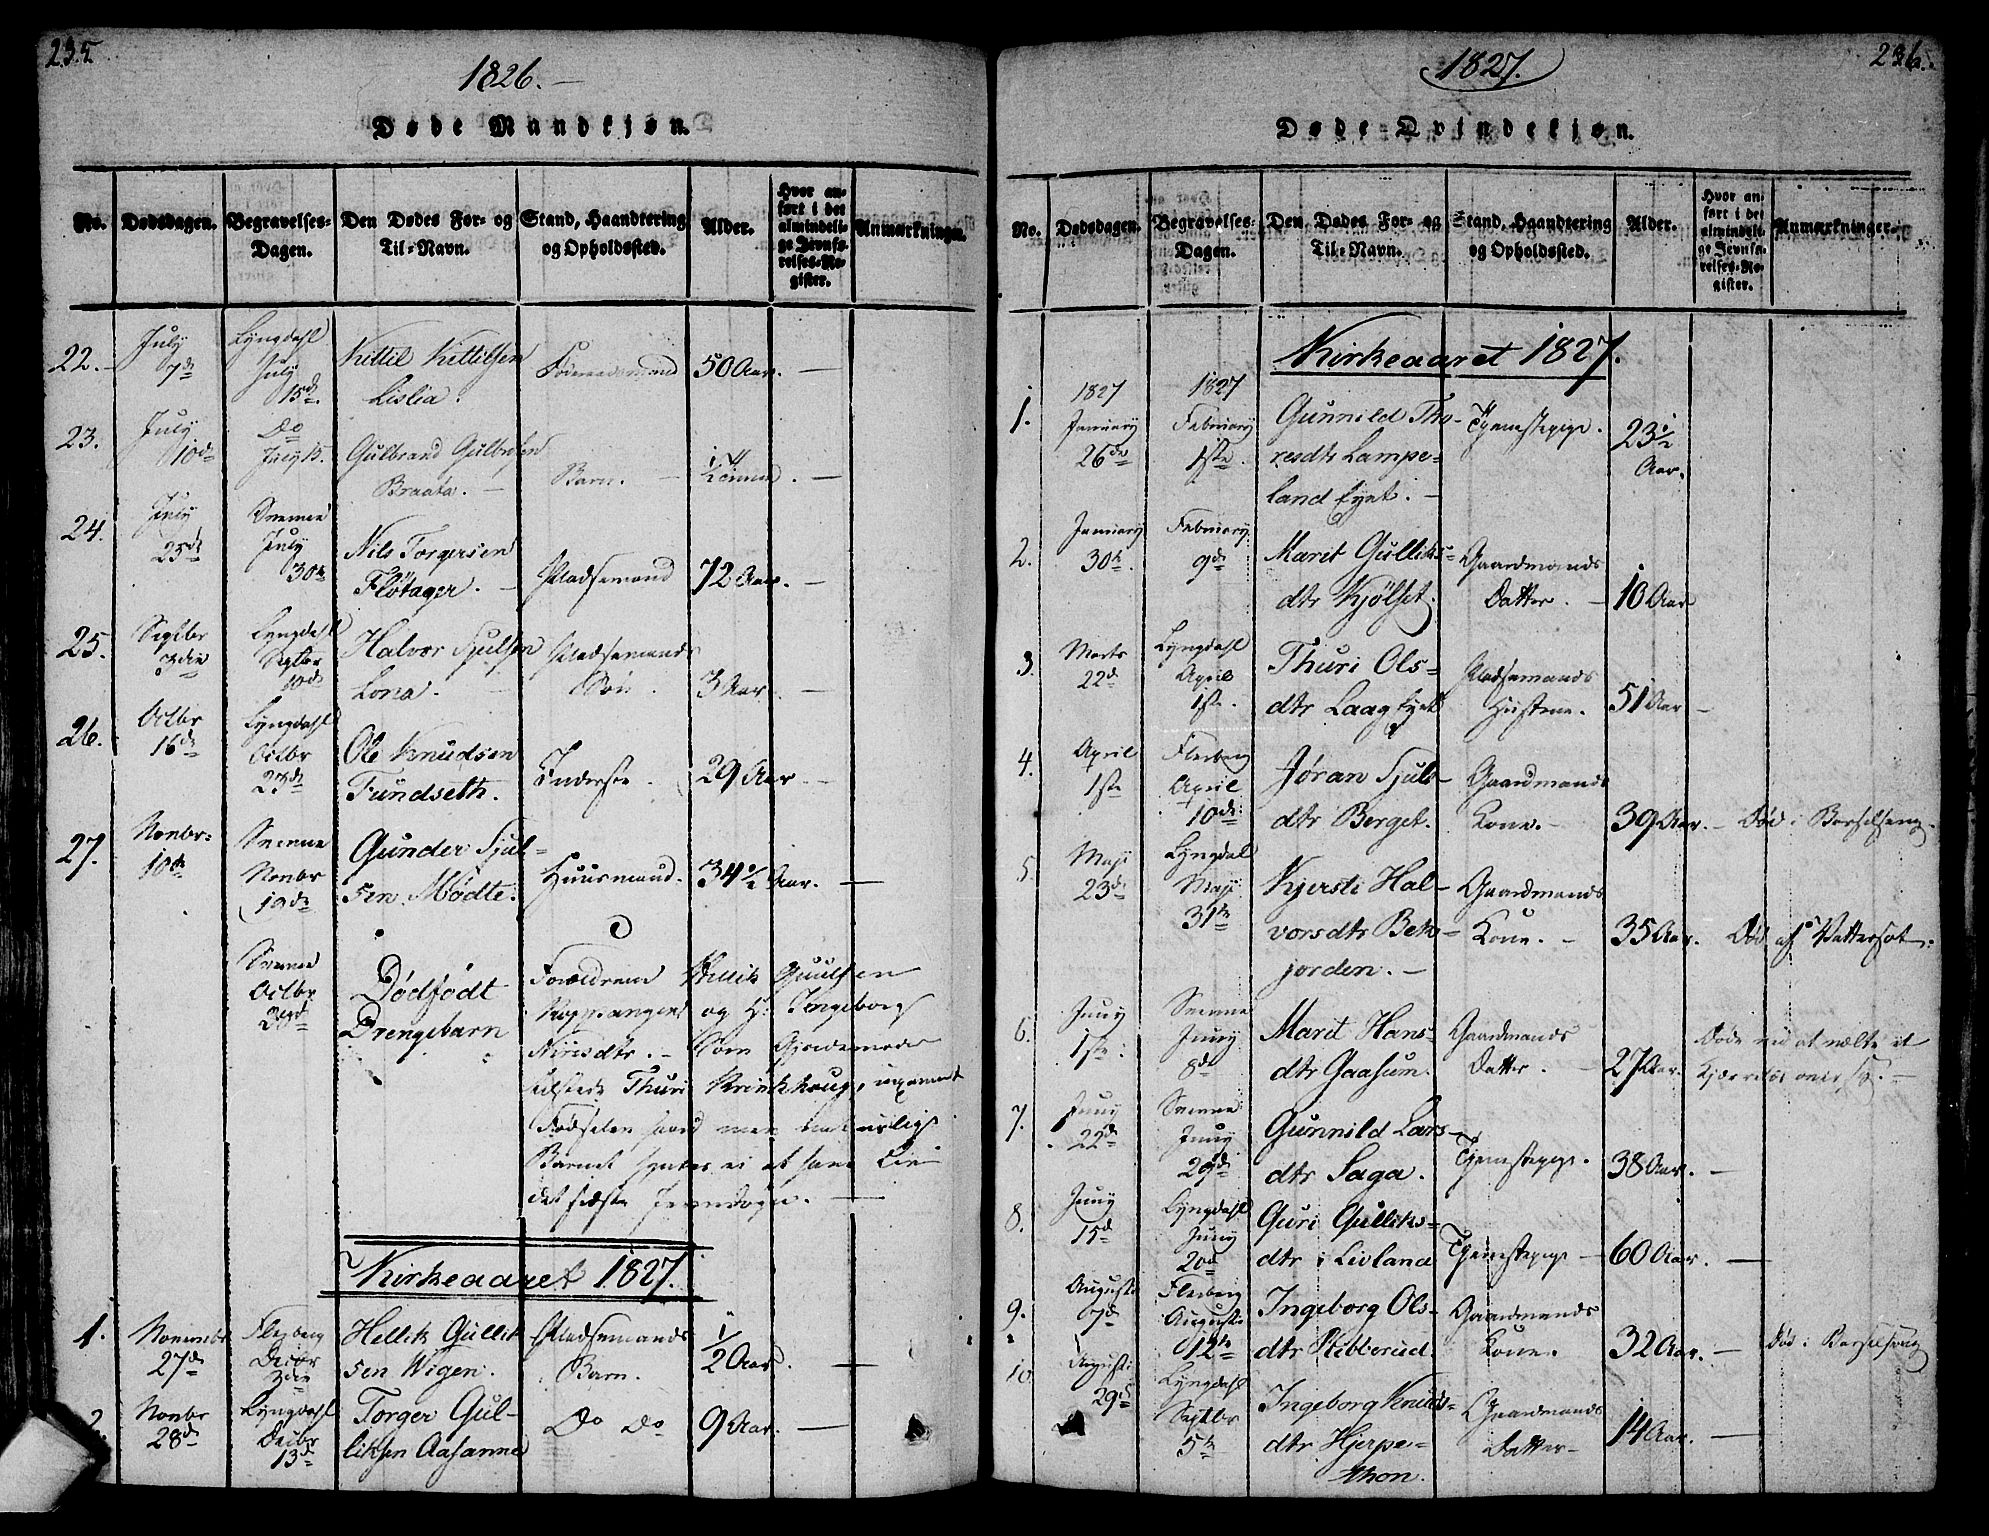 235
1826.
Døde Mandkjøn.
No.
Dødsdagen.
Begravelses-
Dagen.
Den Dødes For- og
Til-Navn.
Stand, Haandtering
og Opholdssted.
Alder.
Hvor an-
ført i det
almindeli-
ge Jevnfø-
relses-Re-
gister.
Anmærkninger.
22. July 7de Lyngdahl July 15de Kittil Kittilsen
Lislia. Føderaadsmand 50 Aar. —
23. July 10de Do July 15. Gulbrand Gulbrsen
Braata. — Barn. —
24. July 25de Svenne July 30te Nils Torgersen
Flötager. — Pladsemand 72 Aar. —
25. Septbr 3die Lyngdahl Septbr 10de Halvor Sjulsen
Lona. Pladsemands
Søn. 3 Aar. —
26. Octbr 16de Lyngdahl Octbr 23de Ole Knudsen
Fundseth. Inderste. 29 Aar —
27. Novbr: 10de Svenne Novbr 19de Gunder Sjul-
sen Mödte. Huusmand. 34 1/2 Aar. —
Svenne Octbr Dödfödt
Drengebarn
Forældrene Hellik
og H: Ingeborg
Som Gjordemoder
Thuri
Födselen
Barnet
Kirkeaaret 1827.
1. Novembr 27de Flesberg Decbr 3die Hellik Gullik
sen Wigen. Pladsemands
Barn. 1/2 Aar. —
2. Novbr 28de Lyngdahl Decbr 13de Torger Gul-
liksen Aasanne Do Do 9 Aar. —
236.
1827.
Døde-Qvindekjøn.
No.
Dødsdagen.
Begravelses-
Dagen.
Den Dødes For- og
Til-Navn.
Stand, Haandtering
og Opholdssted.
Alder.
Hvor an-
ført i det
almindeli-
ge Jevnfø-
relses-Re-
gister.
Anmærkninger.
Kirkeaaret 1827.
1. 1827 January 26de 1827 February 1ste Gunnild Tho-
resdtr Lampe-
land Eyet. — Tjenestepige. 23 1/2
Aar.
2. January 30te February 9de Marit Gulliks-
dtr Kjölset. Gaardmands
Datter. — 10 Aar
3. Marts 22de Lyngdahl April 1ste. Thuri Ols-
dtr Laag Eyet Pladsemands
Hustrue. 51 Aar —
4. April 1ste Flesberg April 10de Jøran Sjuls-
dtr Berget. Gaardmands
Kone. — 39 Aar. — Död i Barselseng.
5. Maji 23de Lyngdal Maji 31te Kjersti Hal-
vorsdtr Bek-
jorden. — Gaardmands
Kone. — 35 Aar. Död af Vattersot.
6. Juny 1ste. Svenne Juny 8de Marit Hans-
dtr Gaasum. Gaardmands
Datter. — 27 Aar. Døde ved at vælte et
7. Juny 22de Svenne Juny 29de Gunnild Lars-
dtr Saga. Tjenestepige. 38 Aar. —
8. Juny 15de Lyngdahl Juny 20de Guri Gulliks-
dtr i Livland Tjenestepige — 60 Aar. —
9. Augusti 7de Flesberg Augusti 12te Ingeborg Ols-
dtr Stibberud. Gaardmands
Kone. 32 Aar. — Död i Barselseng
10. Augusti 29de Lyngdahl Septbr 5te Ingeborg Knuds-
dtr Hjerpe-
thon. Gaardmands
Datter — 14 Aar. —